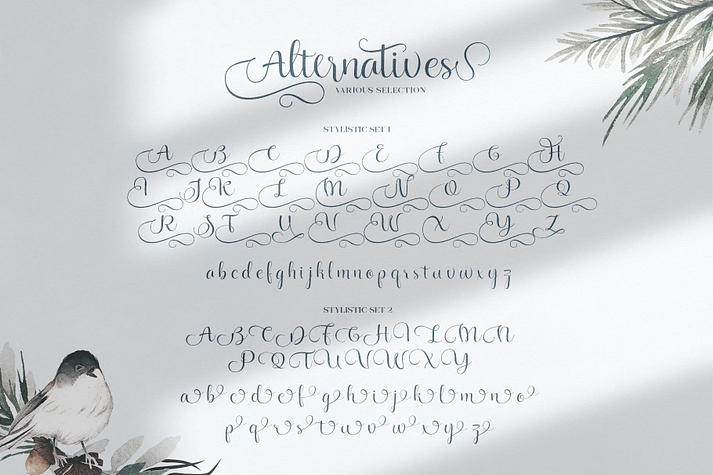 Alternatives
VARIOUS SELECTION
STYLISTIC SET 1
A B C D E F G H
I J K L M N O P Q
R S T U V W X Y Z
abcdefghijklmnopqrstuvwxyz
STYLISTIC SET 2
A B C D F G H I L M N
P Q T U V W X Y
a b c d e f g h i j k l m n o
p q r s t u v w x y z